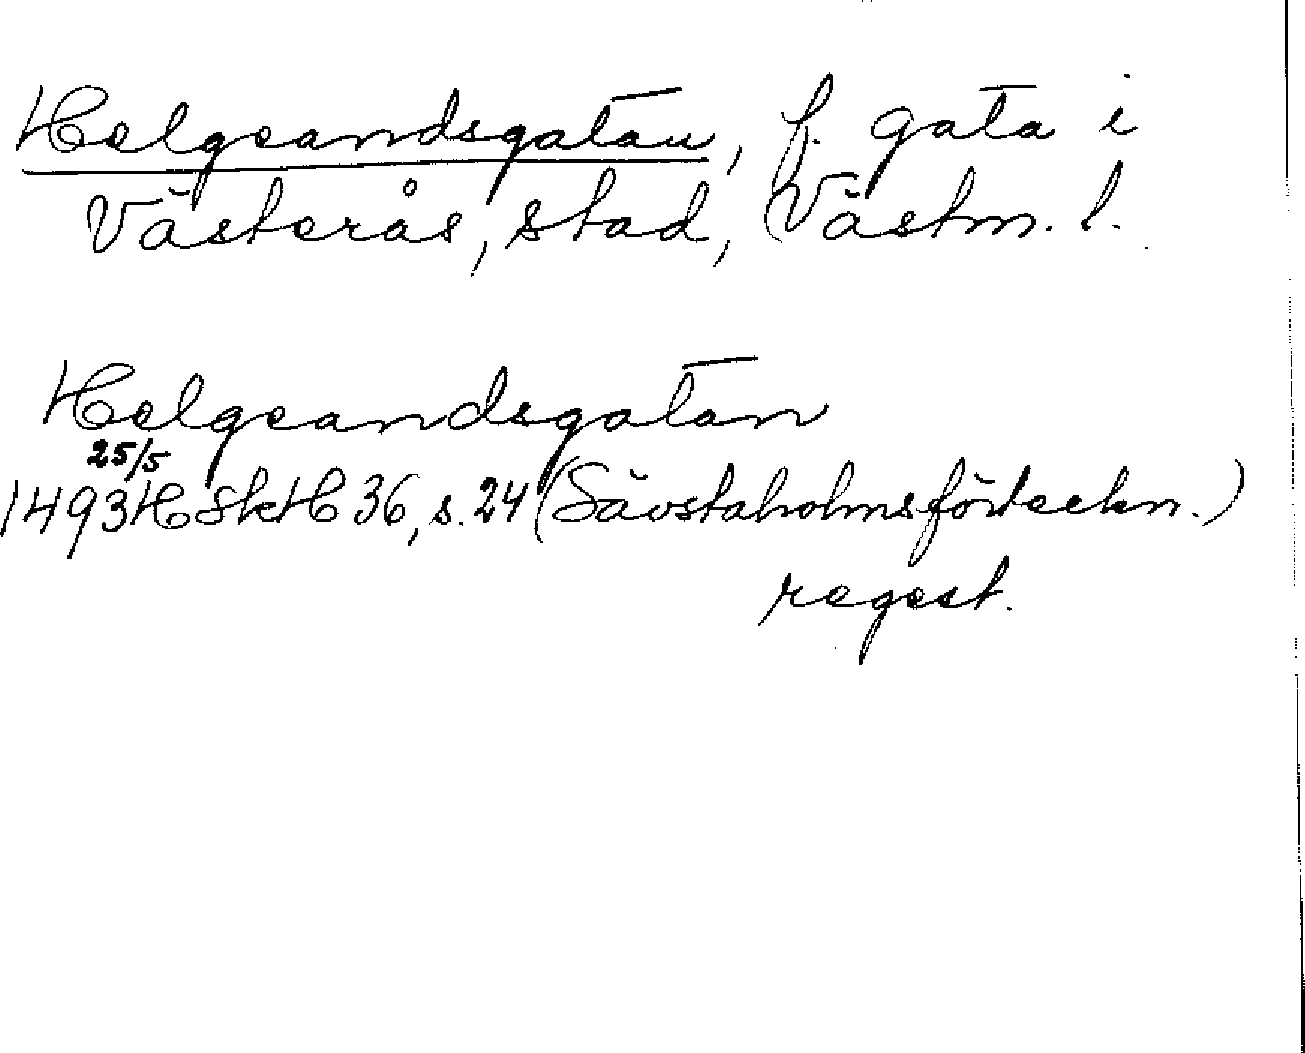 Helgeandsgatan, f. gata i
Västerås, stad, Västm. l.
Helgeandsgatan
25/5
1493 HSkH 36, s. 24 (Sävstaholmsförteckn.)
regest.